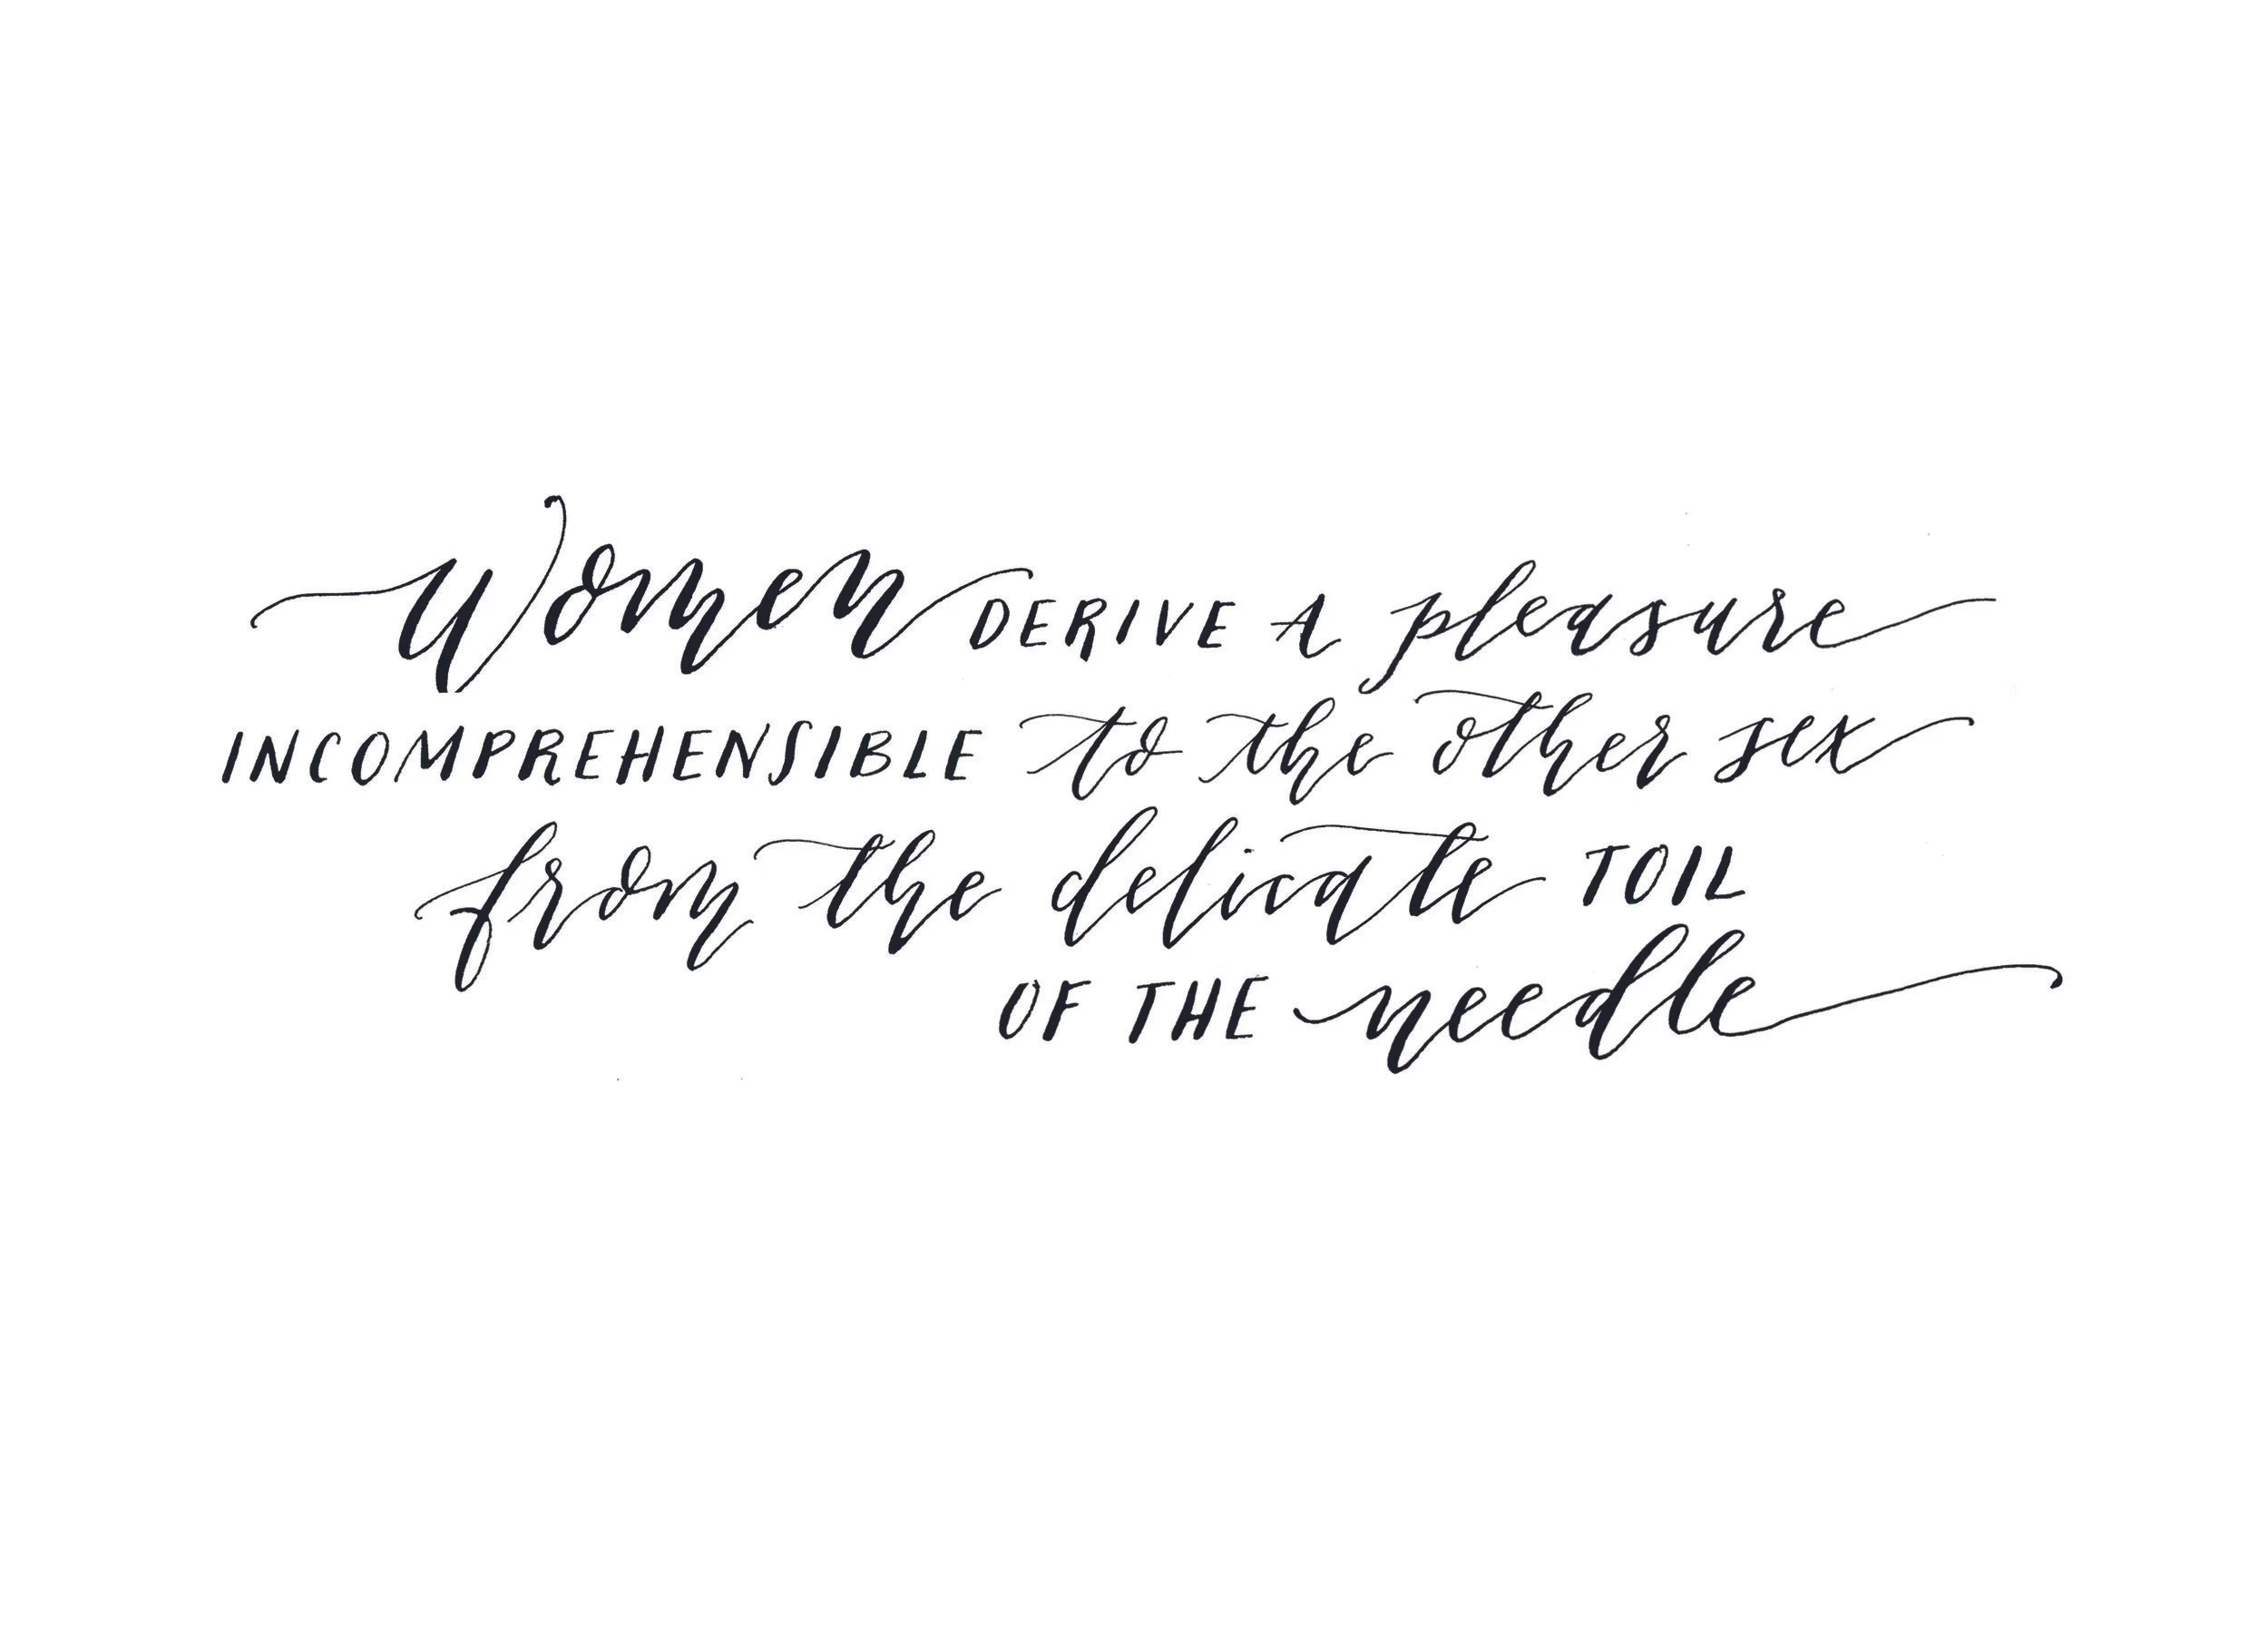 Women DERIVE A pleasure
INCOMPREHENSIBLE to the other sex
from the delicate TOIL
OF THE needle